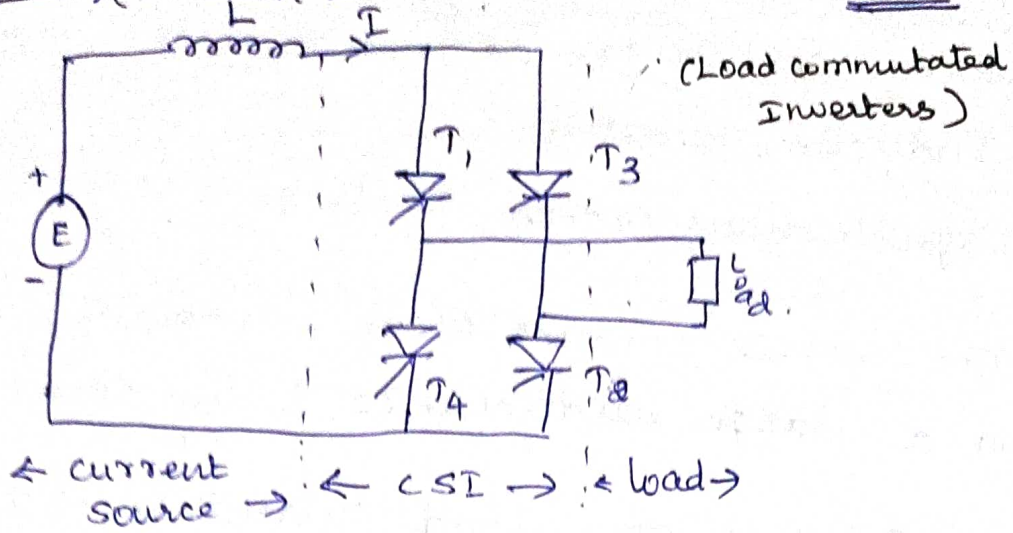 L
I
(Load commutated
Inverters)
T1
T3
+
E
-
Load.
T4
T2
← current
source →
← CSI →
← load →